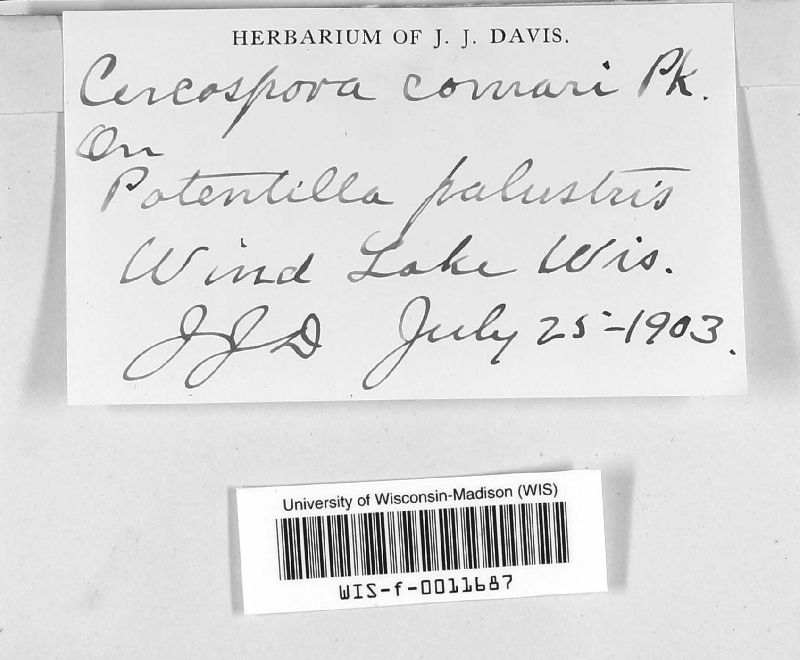 HERBARIUM OF J. J. DAVIS.
Cercospora comari Pk.
On
Potentilla palustris
Wind Lake Wis.
JJD July 25-1903.
University of Wisconsin-Madison (WIS)
WIS-f-0011687